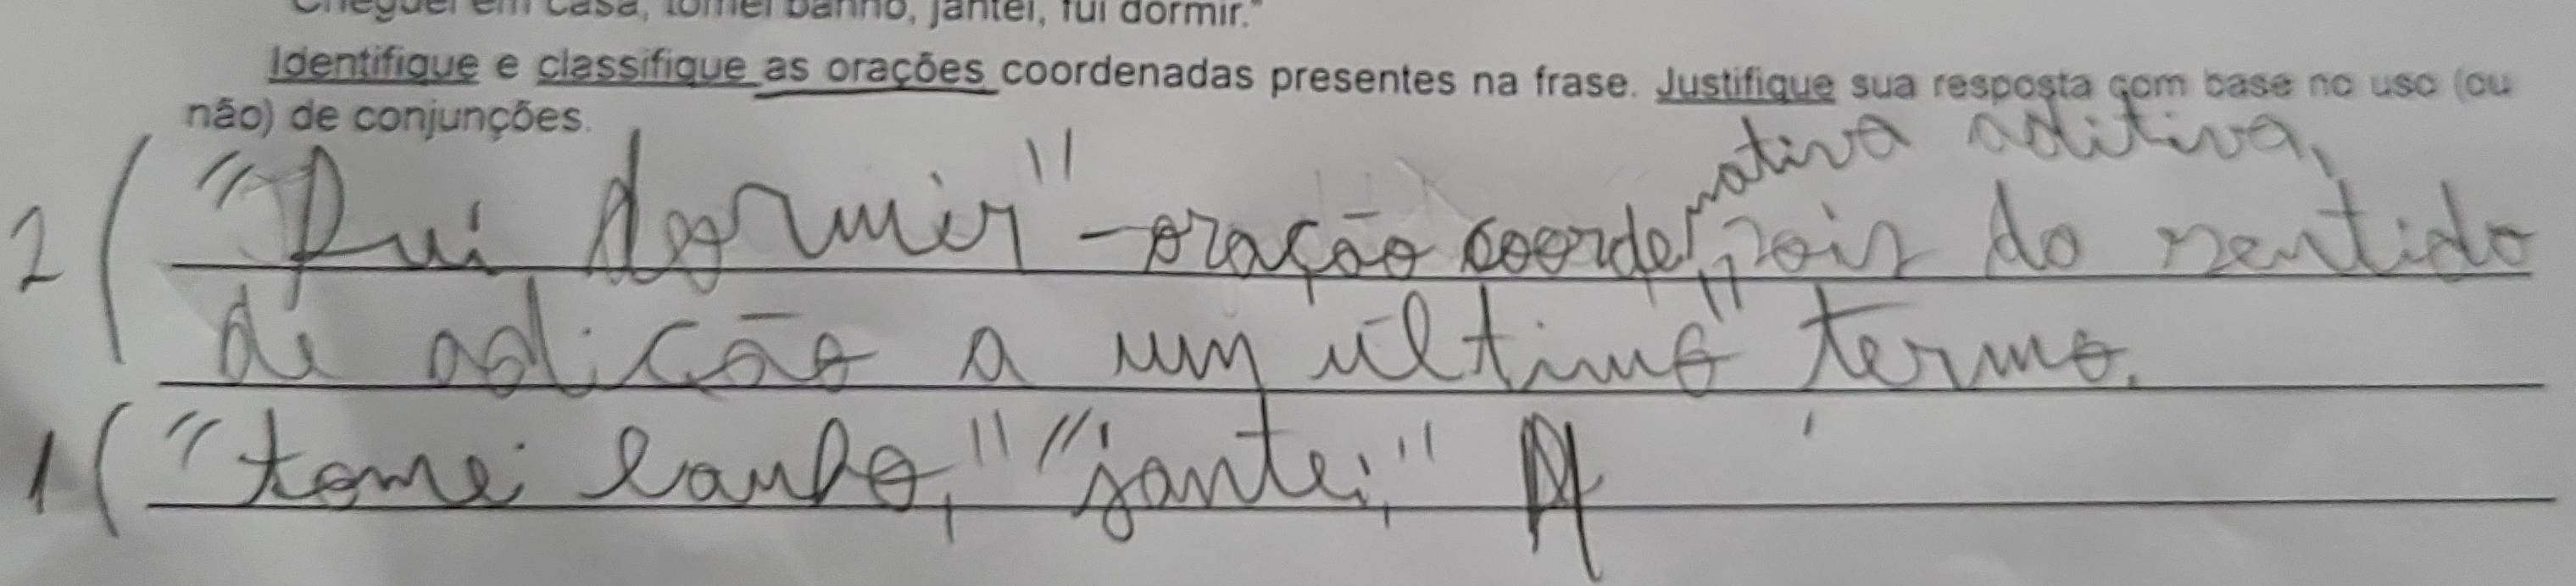 Cheguei em casa, tomei banho, jantei, fui dormir."
Identifique e classifique as orações coordenadas presentes na frase. Justifique sua resposta com base no uso (ou
não) de conjunções.
2 ( "Fui dormir" - oração coordenativa aditiva, pois do sentido
de adição a um "último" termo.
1 ( "tomei banho," "jantei,"